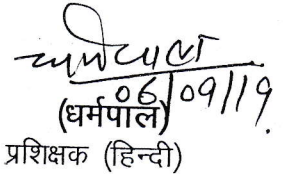 धर्मपाल
06/09/19
(धर्मपाल)
प्रशिक्षक (हिन्दी)